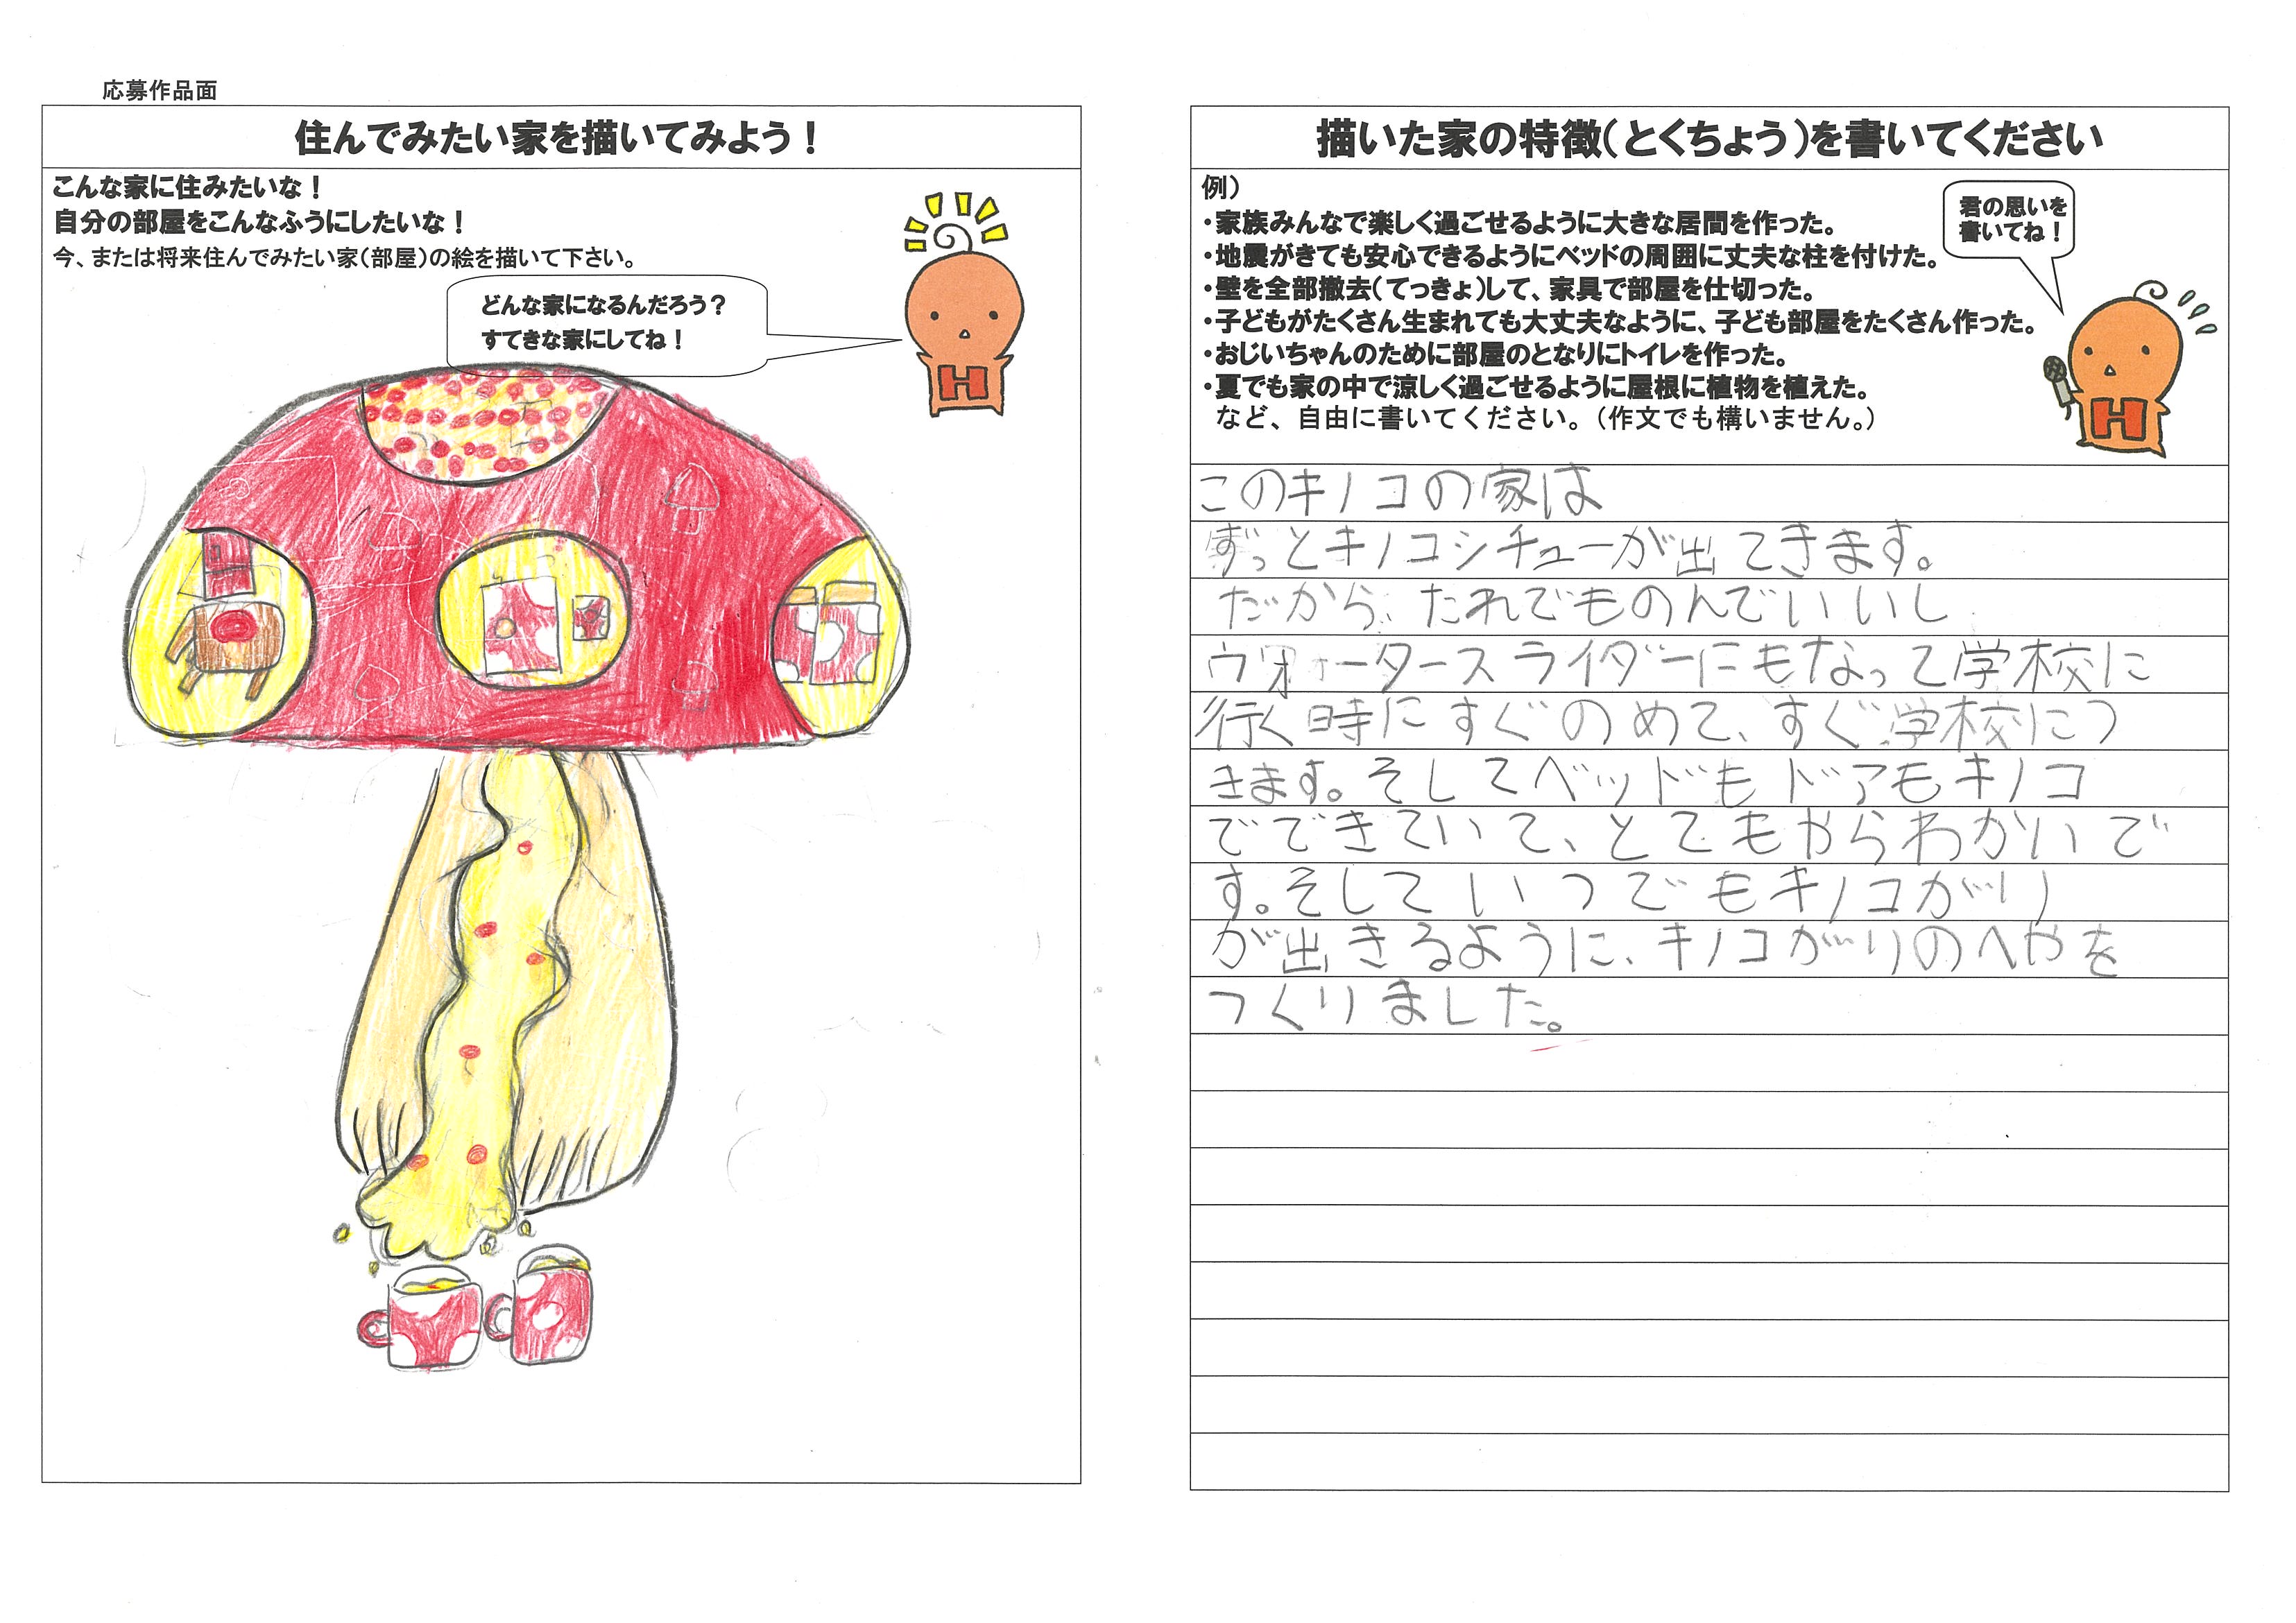 応募作品面
住んでみたい家を描いてみよう！
こんな家に住みたいな！
自分の部屋をこんなふうにしたいな！
今、または将来住んでみたい家（部屋）の絵を描いて下さい。
どんな家になるんだろう？
すてきな家にしてね！
H
描いた家の特徴（とくちょう）を書いてください
例）
・家族みんなで楽しく過ごせるように大きな居間を作った。
・地震がきても安心できるようにベッドの周囲に丈夫な柱を付けた。
・壁を全部撤去（てっきょ）して、家具で部屋を仕切った。
・子どもがたくさん生まれても大丈夫なように、子ども部屋をたくさん作った。
・おじいちゃんのために部屋のとなりにトイレを作った。
・夏でも家の中で涼しく過ごせるように屋根に植物を植えた。
など、自由に書いてください。（作文でも構いません。）
君の思いを
書いてね！
H
このキノコの家は
ずっとキノコシチューが出てきます。
だから、たれでものんでいいし
ウォータースライダーにもなって学校に
行く時にすぐのめて、すぐ学校につ
きます。そしてベッドもドアもキノコ
でできていて、とてもやらわかいで
す。そしていつでもキノコがり
が出きるように、キノコがりのへやを
つくりました。